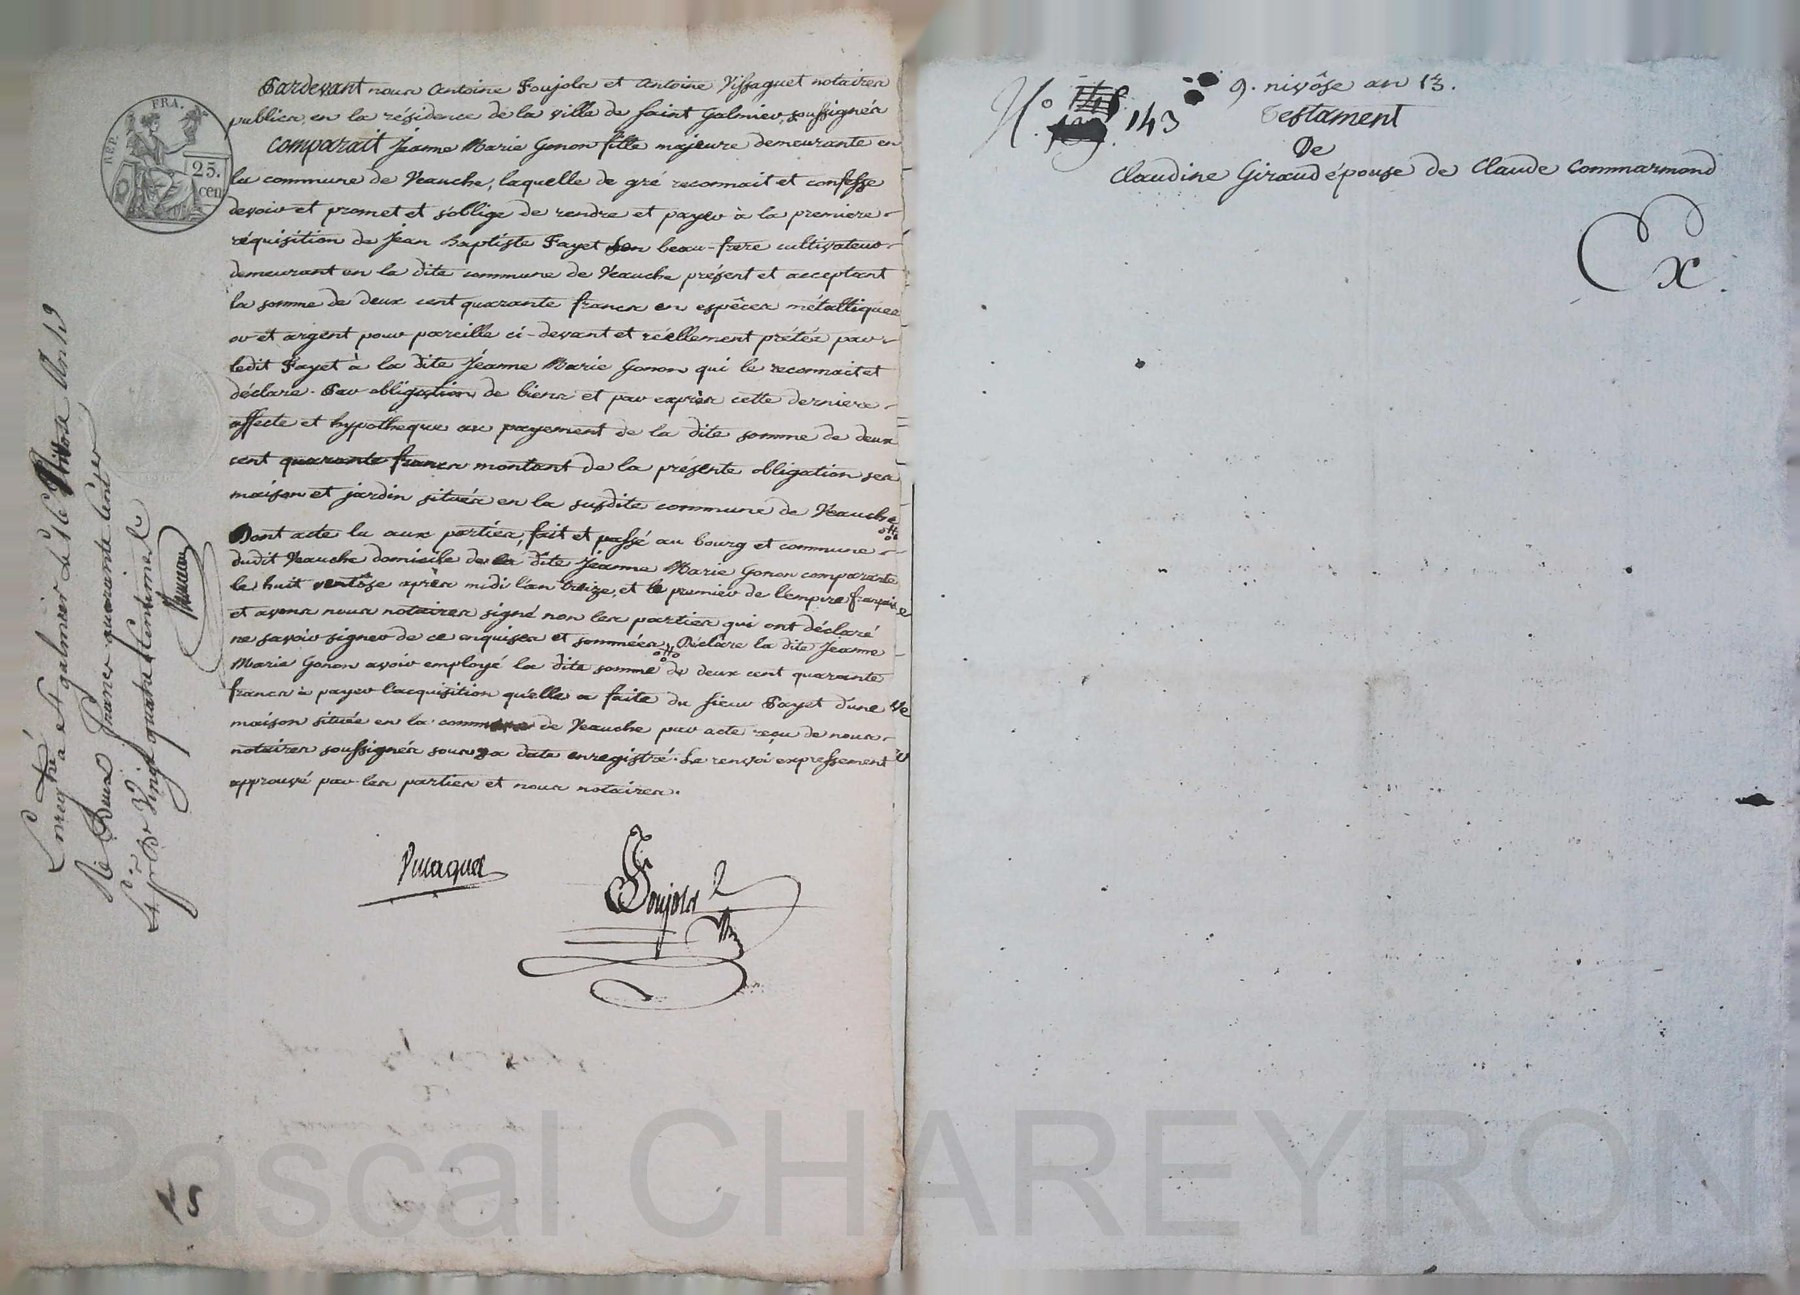 RÉP. FRA.
25.
cen
Pardevant nous Antoine Foujols et Antoine Vissaguet notaires
publics en la résidence de la ville de Saint Galmier, soussignés
Comparait Jeanne Marie Gonon fille majeure demeurante en
la commune de Veauche, laquelle de gré reconnait et confesse
devoir et promet et s'oblige de rendre et payer à la premiere
réquisition de Jean Baptiste Fayet son beau-frere cultivateur
demeurant en la dite commune de Veauche présent et acceptant
la somme de deux cent quarante francs en espêces métalliques
or et argent pour pareille ci-devant et réellement prétée par
ledit Fayet à la dite Jeanne Marie Gonon qui le reconnait et
déclare. Par obligation de biens et par exprès cette derniere
affecte et hypotheque au payement de la dite somme de deux
cent quarante francs montant de la présente obligation ses
maison et jardin situés en la susdite commune de Veauche
Dont acte lu aux parties, fait et passé au bourg et commune
dudit Veauche domicile de la dite Jeanne Marie Gonon comparante
le huit ventôse après midi l'an treize, et le premier de l'empire français
et avons nous notaires signé non les parties qui ont déclaré
ne savoir signer de ce enquises et sommées, Déclare la dite Jeanne
Marie Gonon avoir employé la dite somme de deux cent quarante
francs à payer l'acquisition qu'elle a faite du sieur Fayet d'une
maison située en la commune de Veauche par acte reçu de nous
notaires soussignés sous sa date enregistré. Le renvoi expressement
approuvé par les parties et nous notaires.
Vissaguet
Foujols
Enregistré à St galmier le 16 Ventose An 13
Reçu Deux francs quarante centimes
Vingt quatre Centimes
15
N.° 143
9. nivôse an 13.
Testament
De
Claudine Giraud épouse de Claude Commarmond
Ex.
Pascal CHAREYRON